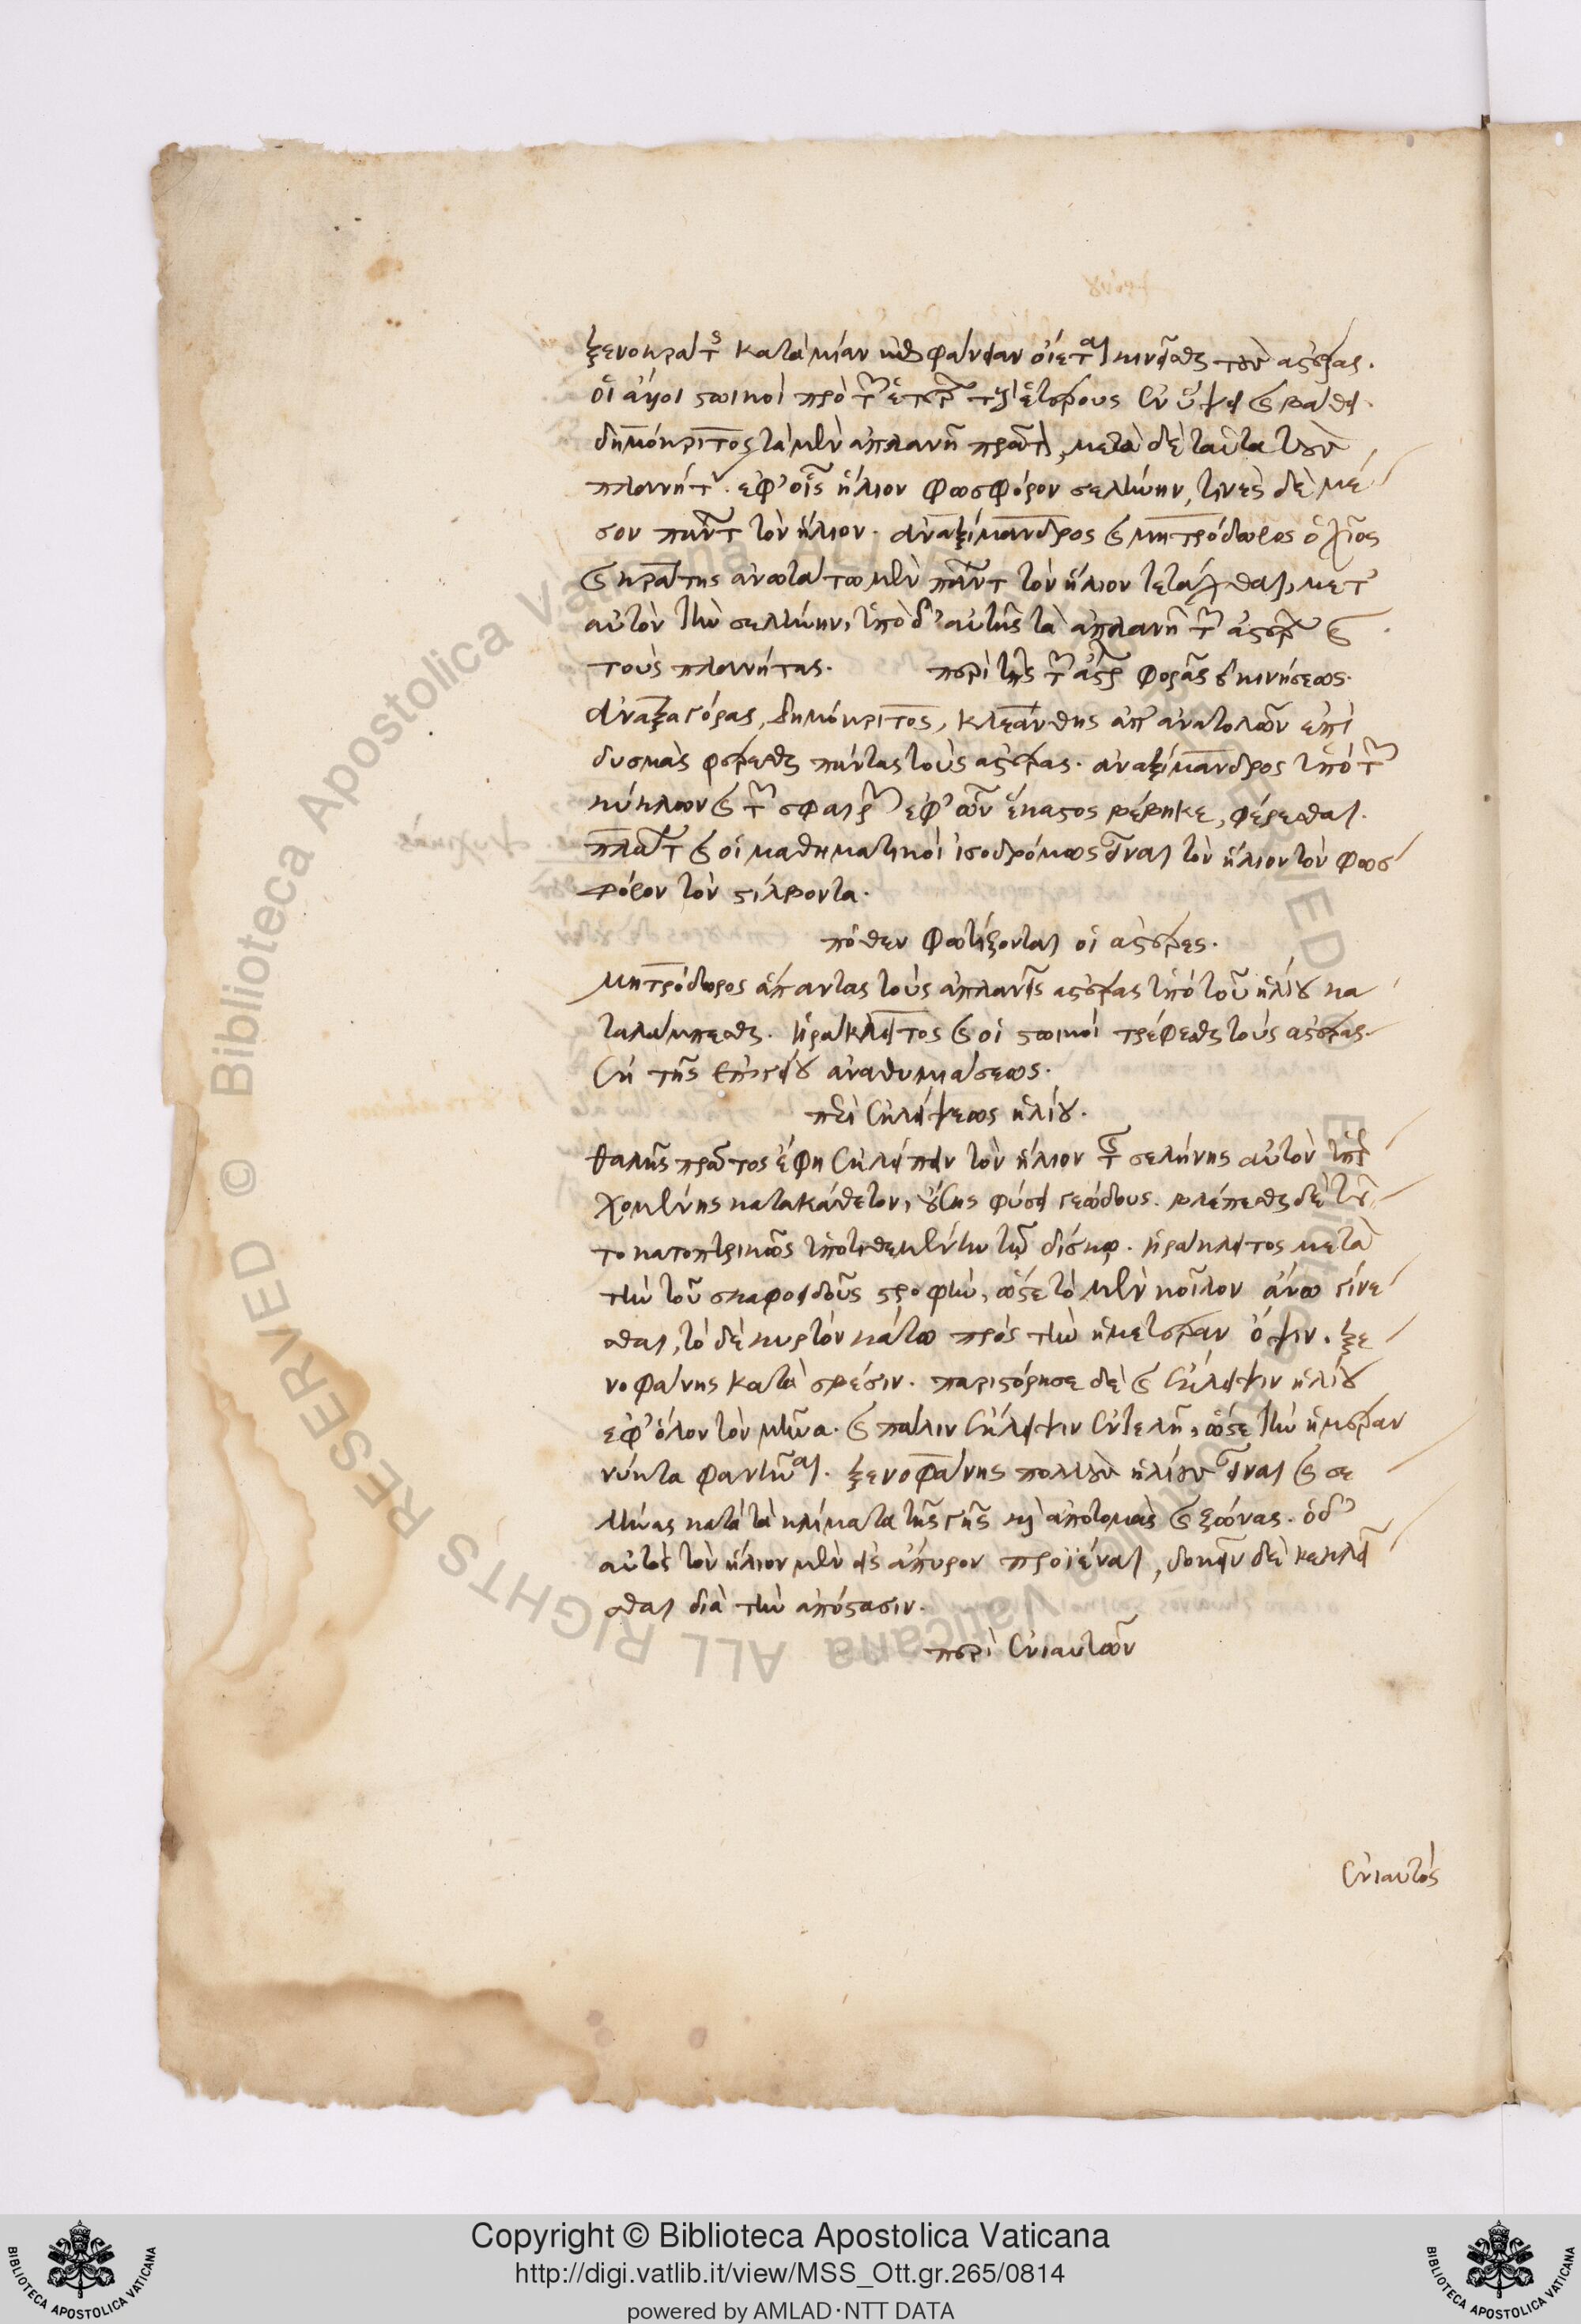 ξενοκράτης κατὰ μίαν ἐπιφάνειαν οἴεται κινεῖσθαι τοὺς ἀστέρας.
οἱ ἄλλοι στωικοὶ πρὸ τῶν ἑτέρων τοὺς ἑτέρους ἐν ὕψει καὶ βάθει.
δημόκριτος τὰ μὲν ἀπλανῆ πρῶτον, μετὰ δὲ ταῦτα τοὺς
πλανήτας. ἐφ' οἷς ἥλιον φωσφόρον σελήνην, τινὲς δὲ μέ
σον πάντων τὸν ἥλιον. ἀναξίμανδρος καὶ μητρόδωρος ὁ χῖος
καὶ κράτης ἀνωτάτω μὲν πάντων τὸν ἥλιον τετάχθαι, μετ'
αὐτὸν τὴν σελήνην, ὑπὸ δ' αὐτῆς τὰ ἀπλανῆ τῶν ἀστέρων καὶ
τοὺς πλανήτας. περὶ τῆς τῶν ἀστέρων φορᾶς καὶ κινήσεως.
ἀναξαγόρας, δημόκριτος, κλεάνθης ἀπ' ἀνατολῶν ἐπὶ
δυσμὰς φέρεσθαι πάντας τοὺς ἀστέρας. ἀναξίμανδρος ὑπὸ τῶν
κύκλων καὶ τῶν σφαιρῶν ἐφ' ὧν ἕκαστος βέβηκε, φέρεσθαι.
πλάτων καὶ οἱ μαθηματικοὶ ἰσοδρόμως εἶναι τὸν ἥλιον τὸν φωσ
φόρον τὸν στίλβοντα.
πόθεν φωτίζονται οἱ ἀστέρες.
μητρόδωρος ἅπαντας τοὺς ἀπλανεῖς ἀστέρας ὑπὸ τοῦ ἡλίου κα
ταλάμπεσθαι. ἡράκλειτος καὶ οἱ στωικοὶ τρέφεσθαι τοὺς ἀστέρας
ἐκ τῆς ἐπιγείου ἀναθυμιάσεως.
περὶ ἐκλείψεως ἡλίου.
θαλῆς πρῶτος ἔφη ἐκλείπειν τὸν ἥλιον τῆς σελήνης αὐτὸν ὑπερ
χομένης κατὰ κάθετον, οὔσης φύσει γεώδους. βλέπεσθαι δὲ τοῦ
το κατοπτρικῶς ὑποτιθεμένην τῷ δίσκῳ. ἡράκλειτος μετὰ
τὴν τοῦ σκαφοειδοῦς στροφὴν, ὥστε τὸ μὲν κοῖλον ἄνω γίνε
σθαι, τὸ δὲ κυρτὸν κάτω πρὸς τὴν ἡμετέραν ὄψιν. ξε
νοφάνης κατὰ σβέσιν. παριστόρησε δὲ καὶ ἔκλειψιν ἡλίου
ἐφ' ὅλον τὸν μῆνα. καὶ πάλιν ἔκλειψιν ἐντελῆ, ὥστε τὴν ἡμέραν
νύκτα φανῆναι. ξενοφάνης πολλοὺς ἡλίους εἶναι καὶ σε
λήνας κατὰ τὰ κλίματα τῆς γῆς καὶ ἀποτομὰς καὶ ζώνας. ὁ δ'
αὐτὸς τὸν ἥλιον μὲν εἰς ἄπυρον προϊέναι, δοκεῖν δὲ κεκλεῖ
σθαι διὰ τὴν ἀπόστασιν.
περὶ ἐνιαυτῶν
ἐνιαυτός
Copyright © Biblioteca Apostolica Vaticana
http://digi.vatlib.it/view/MSS_Ott.gr.265/0814
powered by AMLAD·NTT DATA